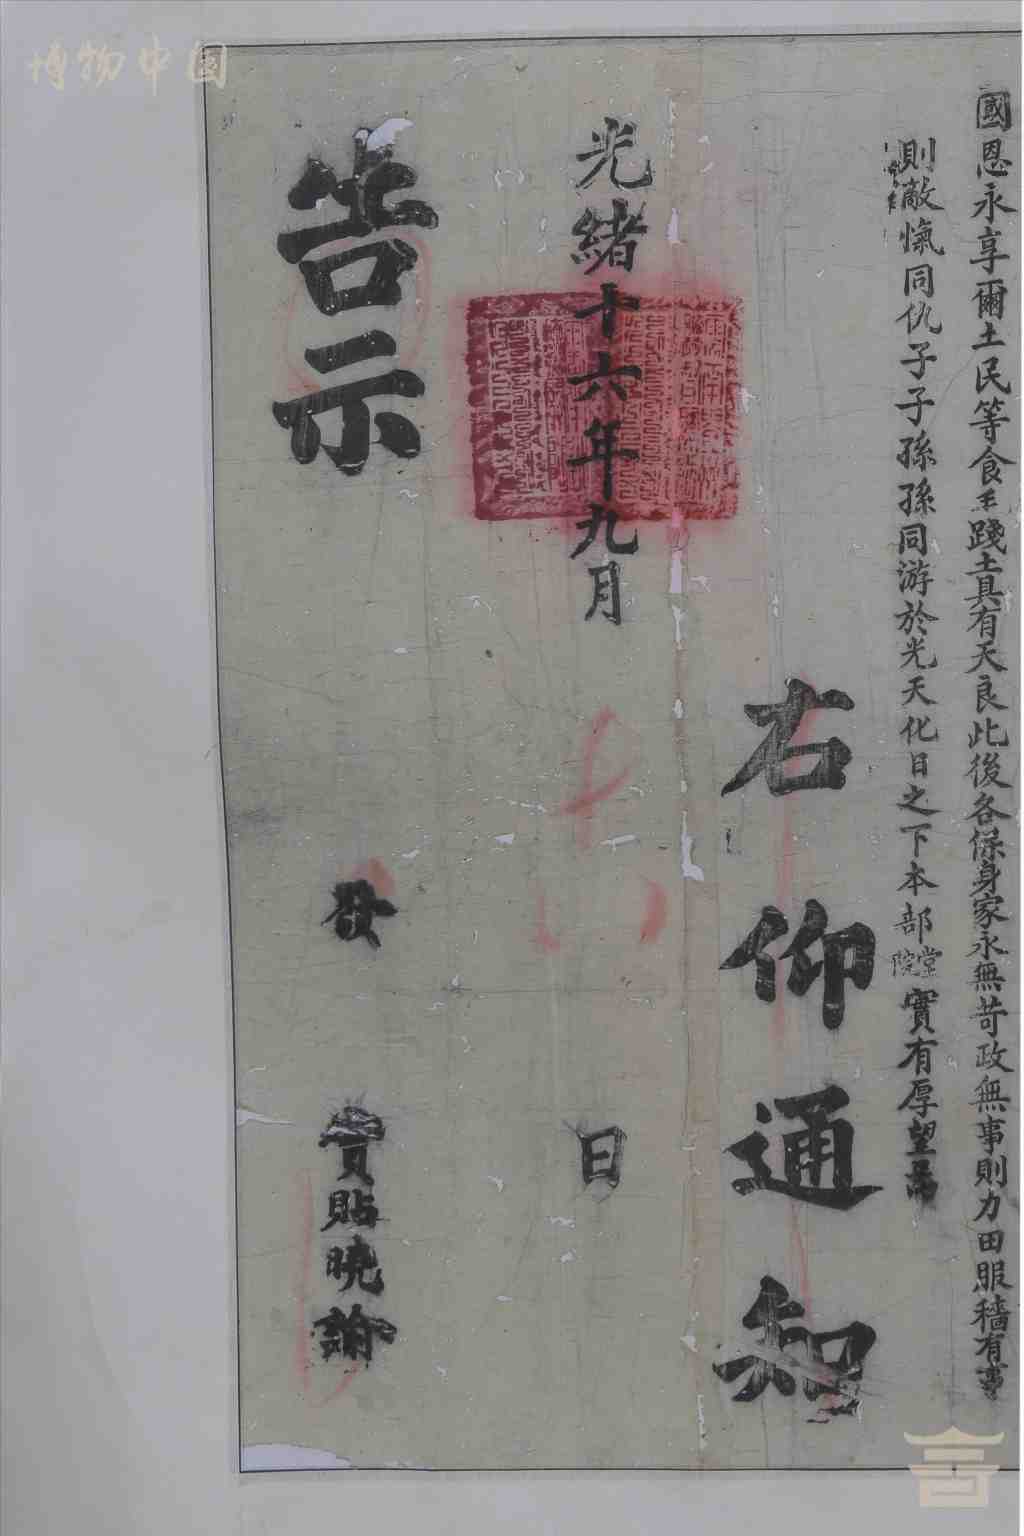 國恩永享爾土民等食毛踐土具有天良此後各保身家永無苛政無事則力田服穡有事
則敵愾同仇子子孫孫同游於光天化日之下本部堂院實有厚望焉
右仰通知
光緒十六年九月 日
告示
發 實貼曉諭
博物中国